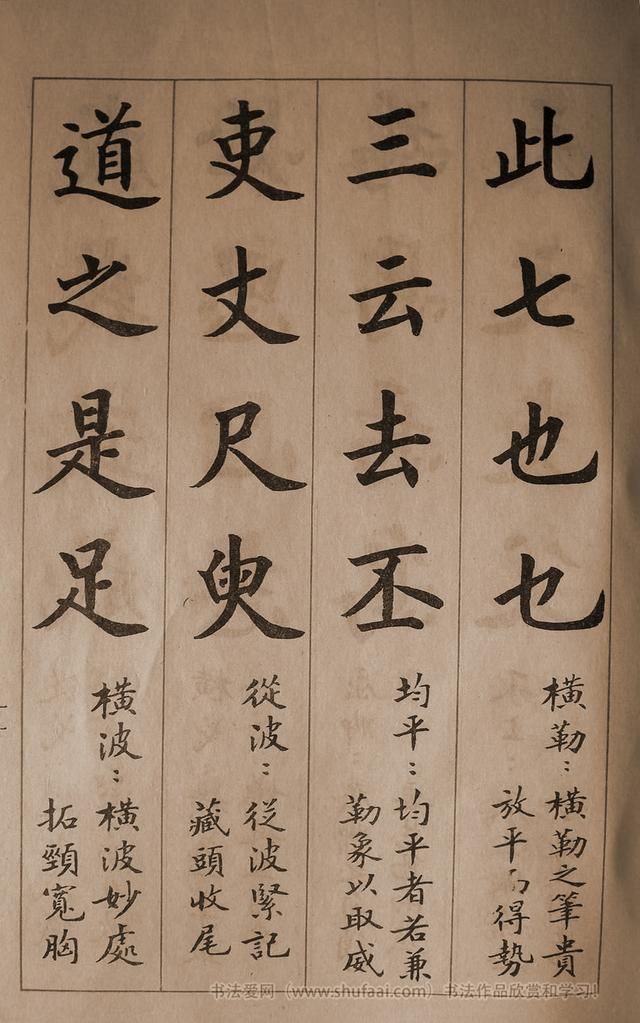 此七也乜
横勒：横勒之筆貴
放平而得勢
三云去丕
均平：均平者若兼
勒象以取威
吏丈尺臾
從波：從波緊記
藏頭收尾
道之是足
橫波：橫波妙處
拓頸寬胸
书法爱网（www.shufaai.com）书法作品欣赏和学习！